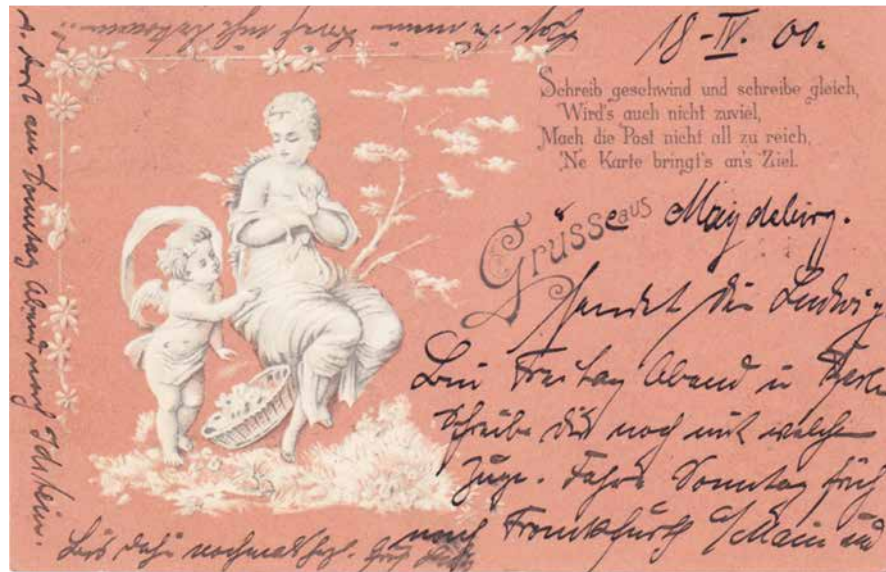 18-IV. 00.
Schreib geschwind und schreibe gleich,
Wird's auch nicht zuviel,
Mach die Post nicht all zu reich,
'Ne Karte bringt's an's Ziel.
Grüsse aus Magdeburg.
sendet dir Ludwig
Bin Freitag Abend in
schreibe dir noch mit welchem
Zuge. Fahre Sonntag früh
nach Frankfurth a/Main und
v. dort am Sonntag Abend nach Idstein.
Bis dahin nochmals herzl. Gruß